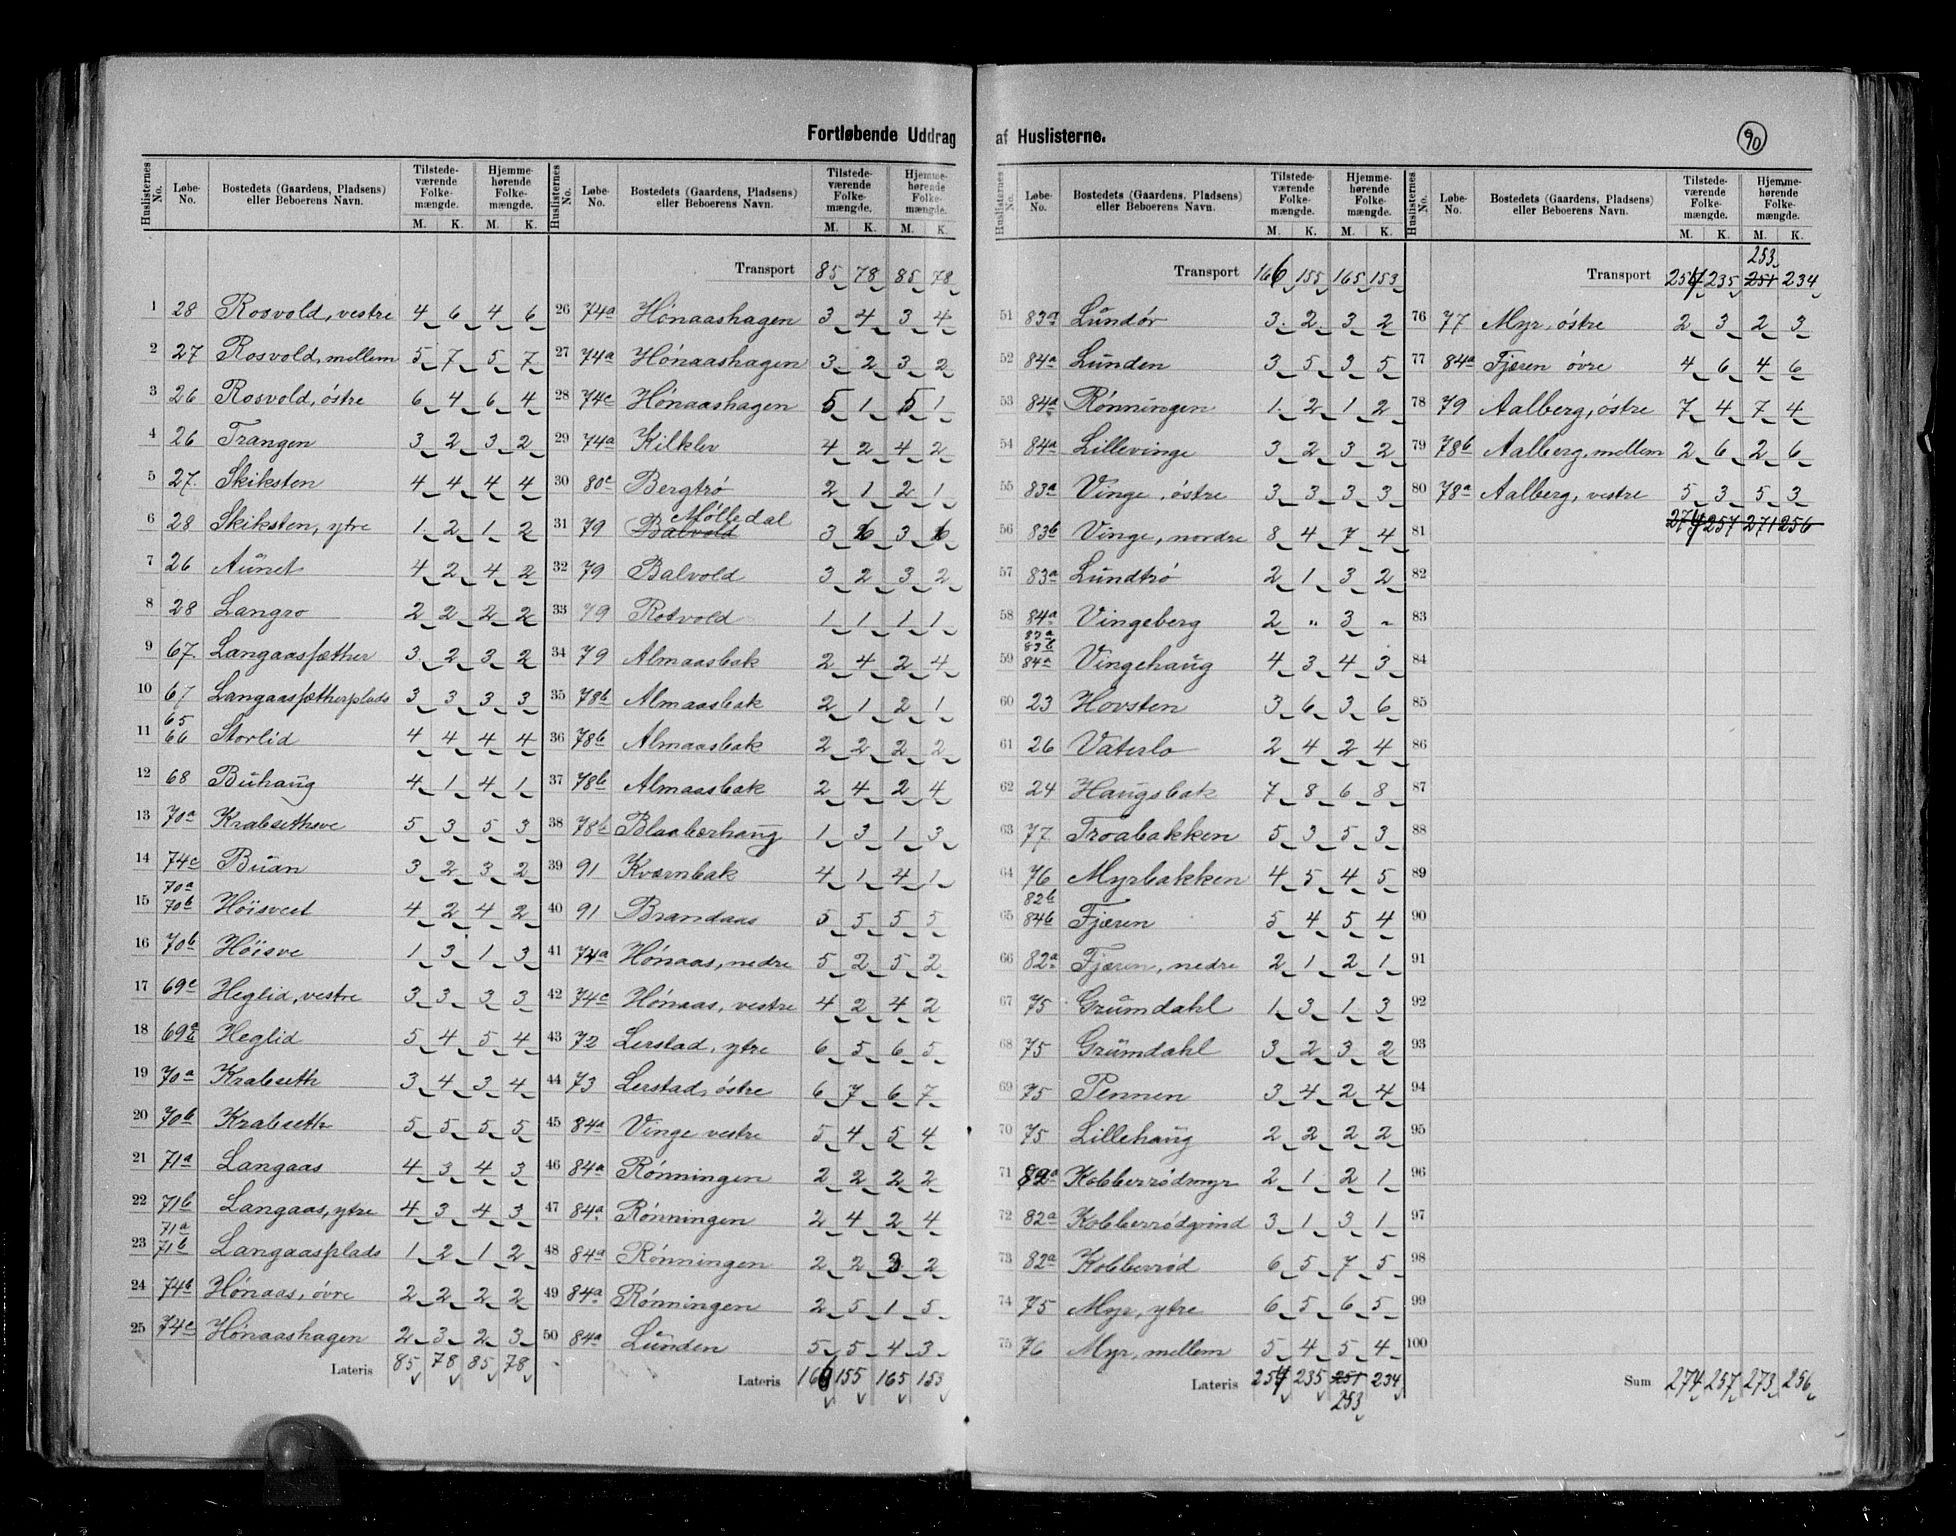 Fortløbende Uddrag af Huslisterne.
90
Huslisternes No. Løbe-No. Bostedets (Gaardens, Pladsens) eller Beboerens Navn. Tilstedeværende Folkemængde. M. K. Hjemmehørende Folkemængde. M. K.
1 28 Rosvold, vestre 4 6 4 6
2 27 Rosvold, mellem 5 7 5 7
3 26 Rosvold, östre 6 4 6 4
4 26 Trangen 3 2 3 2
5 27. Skiksten 4 4 4 4
6 28 Skiksten, ytre 1 2 1 2
7 26 Aunet 4 2 4 2
8 28 Langro 2 2 2 2
9 67. Langaassæther 3 2 3 2
10 67 Langaassætherplads 3 3 3 3
11 65 66 Storlid 4 4 4 4
12 68 Buhaug 4 1 4 1
13 70a Krabsethsve 5 3 5 3
14 74c Buan 3 2 3 2
15 70a 70b Höisveet 4 2 4 2
16 70b Höisve 1 3 1 3
17 69c Heglid, vestre 3 3 3 3
18 69a b Heglid 5 4 5 4
19 70a Krabseth 3 4 3 4
20 70b Krabseth 5 5 5 5
21 71a Langaas 4 3 4 3
22 71b Langaas, ytre 4 3 4 3
23 71a 71b Langaasplads 1 2 1 2
24 74b Hónaas, óvre 2 2 2 2
25 74c Hónaashagen 2 3 2 3
Lateris 85 78 85 78
Huslisternes No. Løbe-No. Bostedets (Gaardens, Pladsens) eller Beboerens Navn. Tilstedeværende Folkemængde. M. K. Hjemmehørende Folkemængde. M. K.
Transport 85 78 85 78
26 74a Hónaashagen 3 4 3 4
27 74a Hónaashagen 3 2 3 2
28 74c Hónaashagen 5 1 5 1
29 74a Kilklev 4 2 4 2
30 80c Bergtró 2 1 2 1
31 79 Balvold Mólledal 3 6 3 6
32 79 Balvold 3 2 3 2
33 79 Rotvold 1 1 1 1
34 79 Almaasbak 2 4 2 4
35 78b Almaasbak 2 1 2 1
36 78b Almaasbak 2 2 2 2
37 78b Almaasbak 2 4 2 4
38 78b Blaabærhaug 1 3 1 3
39 91 Kværnbak 4 1 4 1
40 91 Brandaas 5 5 5 5
41 74a Hónaas, nedre 5 2 5 2
42 74c Hónaas, vestre 4 2 4 2
43 72 Lerstad, ytre 6 5 6 5
44 73 Lerstad, óstre 6 7 6 7
45 84a Vinge vestre 5 4 5 4
46 84a Rónningen 2 2 2 2
47 84a Rónningen 2 4 2 4
48 84a Rónningen 2 2 3 2
49 84a Rónningen 2 5 1 5
50 84a Lunden 5 5 4 3
Lateris 166 155 165 153
Huslisternes No. Løbe-No. Bostedets (Gaardens, Pladsens) eller Beboerens Navn. Tilstedeværende Folkemængde. M. K. Hjemmehørende Folkemængde. M. K.
Transport 166 155 165 153
51 83a Lundór 3 2 3 2
52 84a Lunden 3 5 3 5
53 84a Rónningen 1 2 1 2
54 84a Lillevinge 3 2 3 2
55 83a Vinge, óstre 3 3 3 3
56 83b Vinge, nordre 8 4 7 4
57 83a Lundtró 2 1 3 2
58 84a Vingeberg 2 " 3 "
59 83a 83b 84a Vingehaug 4 3 4 3
60 23 Hovsten 3 6 3 6
61 26 Vaterlo 2 4 2 4
62 24 Haugsbak 7 8 6 8
63 77. Troabakken 5 3 5 3
64 76 Myrbakken 4 5 4 5
65 82b 84b Fjæren 5 4 5 4
66 82a Fjæren, nedre 2 1 2 1
67 75 Grumdahl 1 3 1 3
68 75 Grumdahl 3 2 3 2
69 75 Pennen 3 4 2 4
70 75 Lillehaug 2 2 2 2
71 82a Kobberródmyr 2 1 2 1
72 82a Kobberródgrind 3 1 3 1
73 82a Kobberród 6 5 7 5
74 75 Myr, ytre 6 5 6 5
75 76 Myr, mellem 5 4 5 4
Lateris 254 235 251 234
253
Huslisternes No. Løbe-No. Bostedets (Gaardens, Pladsens) eller Beboerens Navn. Tilstedeværende Folkemængde. M. K. Hjemmehørende Folkemængde. M. K.
253
Transport 254 235 251 234
76 77 Myr, óstre 2 3 2 3
77 84a Fjæren óvre 4 6 4 6
78 79 Aalberg, óstre 7 4 7 4
79 78b Aalberg, mellem 2 6 2 6
80 78a Aalberg, vestre 5 3 5 3
81 274 257 271 256
82
83
84
85
86
87
88
89
90
91
92
93
94
95
96
97
98
99
100
Sum 274 257 273 256